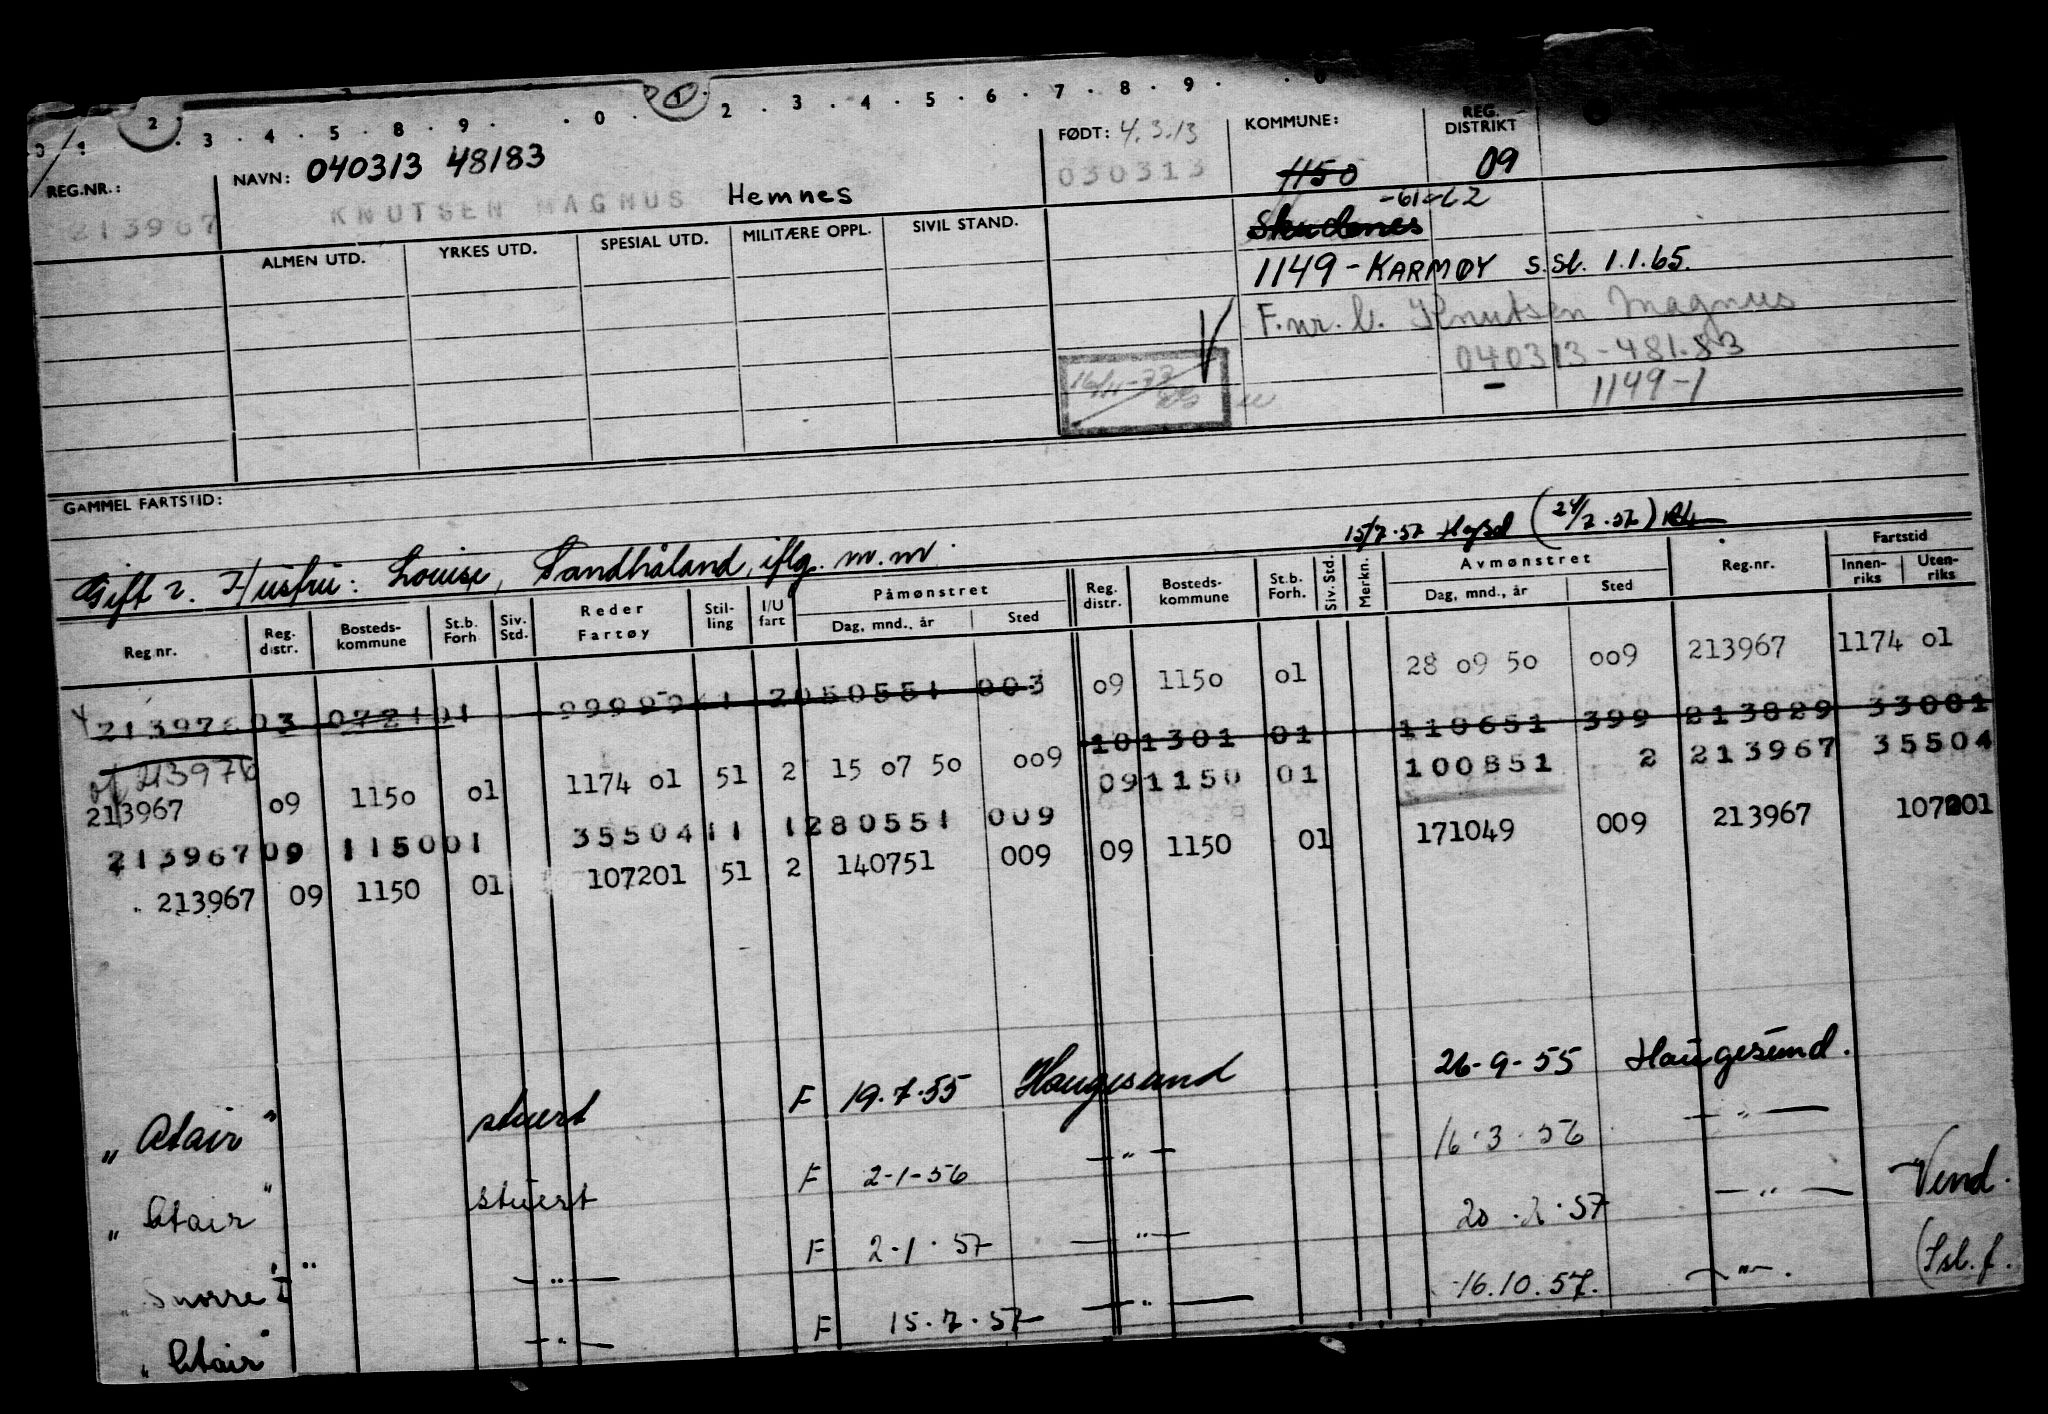 0 1 2 · 3 · 4 · 5 · 8 · 9 · · 0 · 1 · 2 · 3 · 4 · 5 · 6 · 7 · 8 · 9 · · 0
REG.NR.: NAVN: 040313 48183 FØDT: 4.3.13 KOMMUNE: REG. DISTRIKT
213967 KNUTSEN MAGNUS Hemnes 030313 1150 09
-61-62
ALMEN UTD. YRKES UTD. SPESIAL UTD. MILITÆRE OPPL. SIVIL STAND. Skudenes
1149 - KARMØY S.Sl. 1.1.65.
F.nr. b. Knutsen Magnus
040313-481.83
16/11-73 1149-1
GAMMEL FARTSTID:
15/7.57 Hgsd (24/7.57)
Gift 2. Hustru: Louise, Sandhåland, iflg. m.m.
Reg nr. Reg. distr. Bosteds-kommune St.b. Forh Siv. Std. Reder Fartøy Stil-ling I/U fart Påmønstret Dag, mnd., år Sted Reg. distr. Bosteds-kommune St.b. Forh. Siv. Std. Merkn. Avmønstret Dag, mnd., år Sted Reg.nr. Fartstid Innen-riks Uten-riks
213976 03 0721 01 999996 11 2 050551 003 09 1150 01 28 09 50 009 213967 1174 01
of 213976 10 1301 01 110651 399 213829 33001
213967 09 1150 01 1174 01 51 2 15 07 50 009 09 1150 01 100851 2 213967 35504
213967 09 1150 01 35504 11 1 280551 009 09 1150 01 171049 009 213967 107201
213967 09 1150 01 107201 51 2 140751 009
„Atair" stuert F 19.7.55 Haugesund 26-9-55 Haugesund.
„Atair" stuert F 2-1-56 —„— 16.3.56 —„—
„Snorre I" —„— F 2-1.57 —„— 20.2.57 —„— Vend.
„Atair" —„— F 15.7.57 —„— 16.10.57. —„—. (Isl.f.